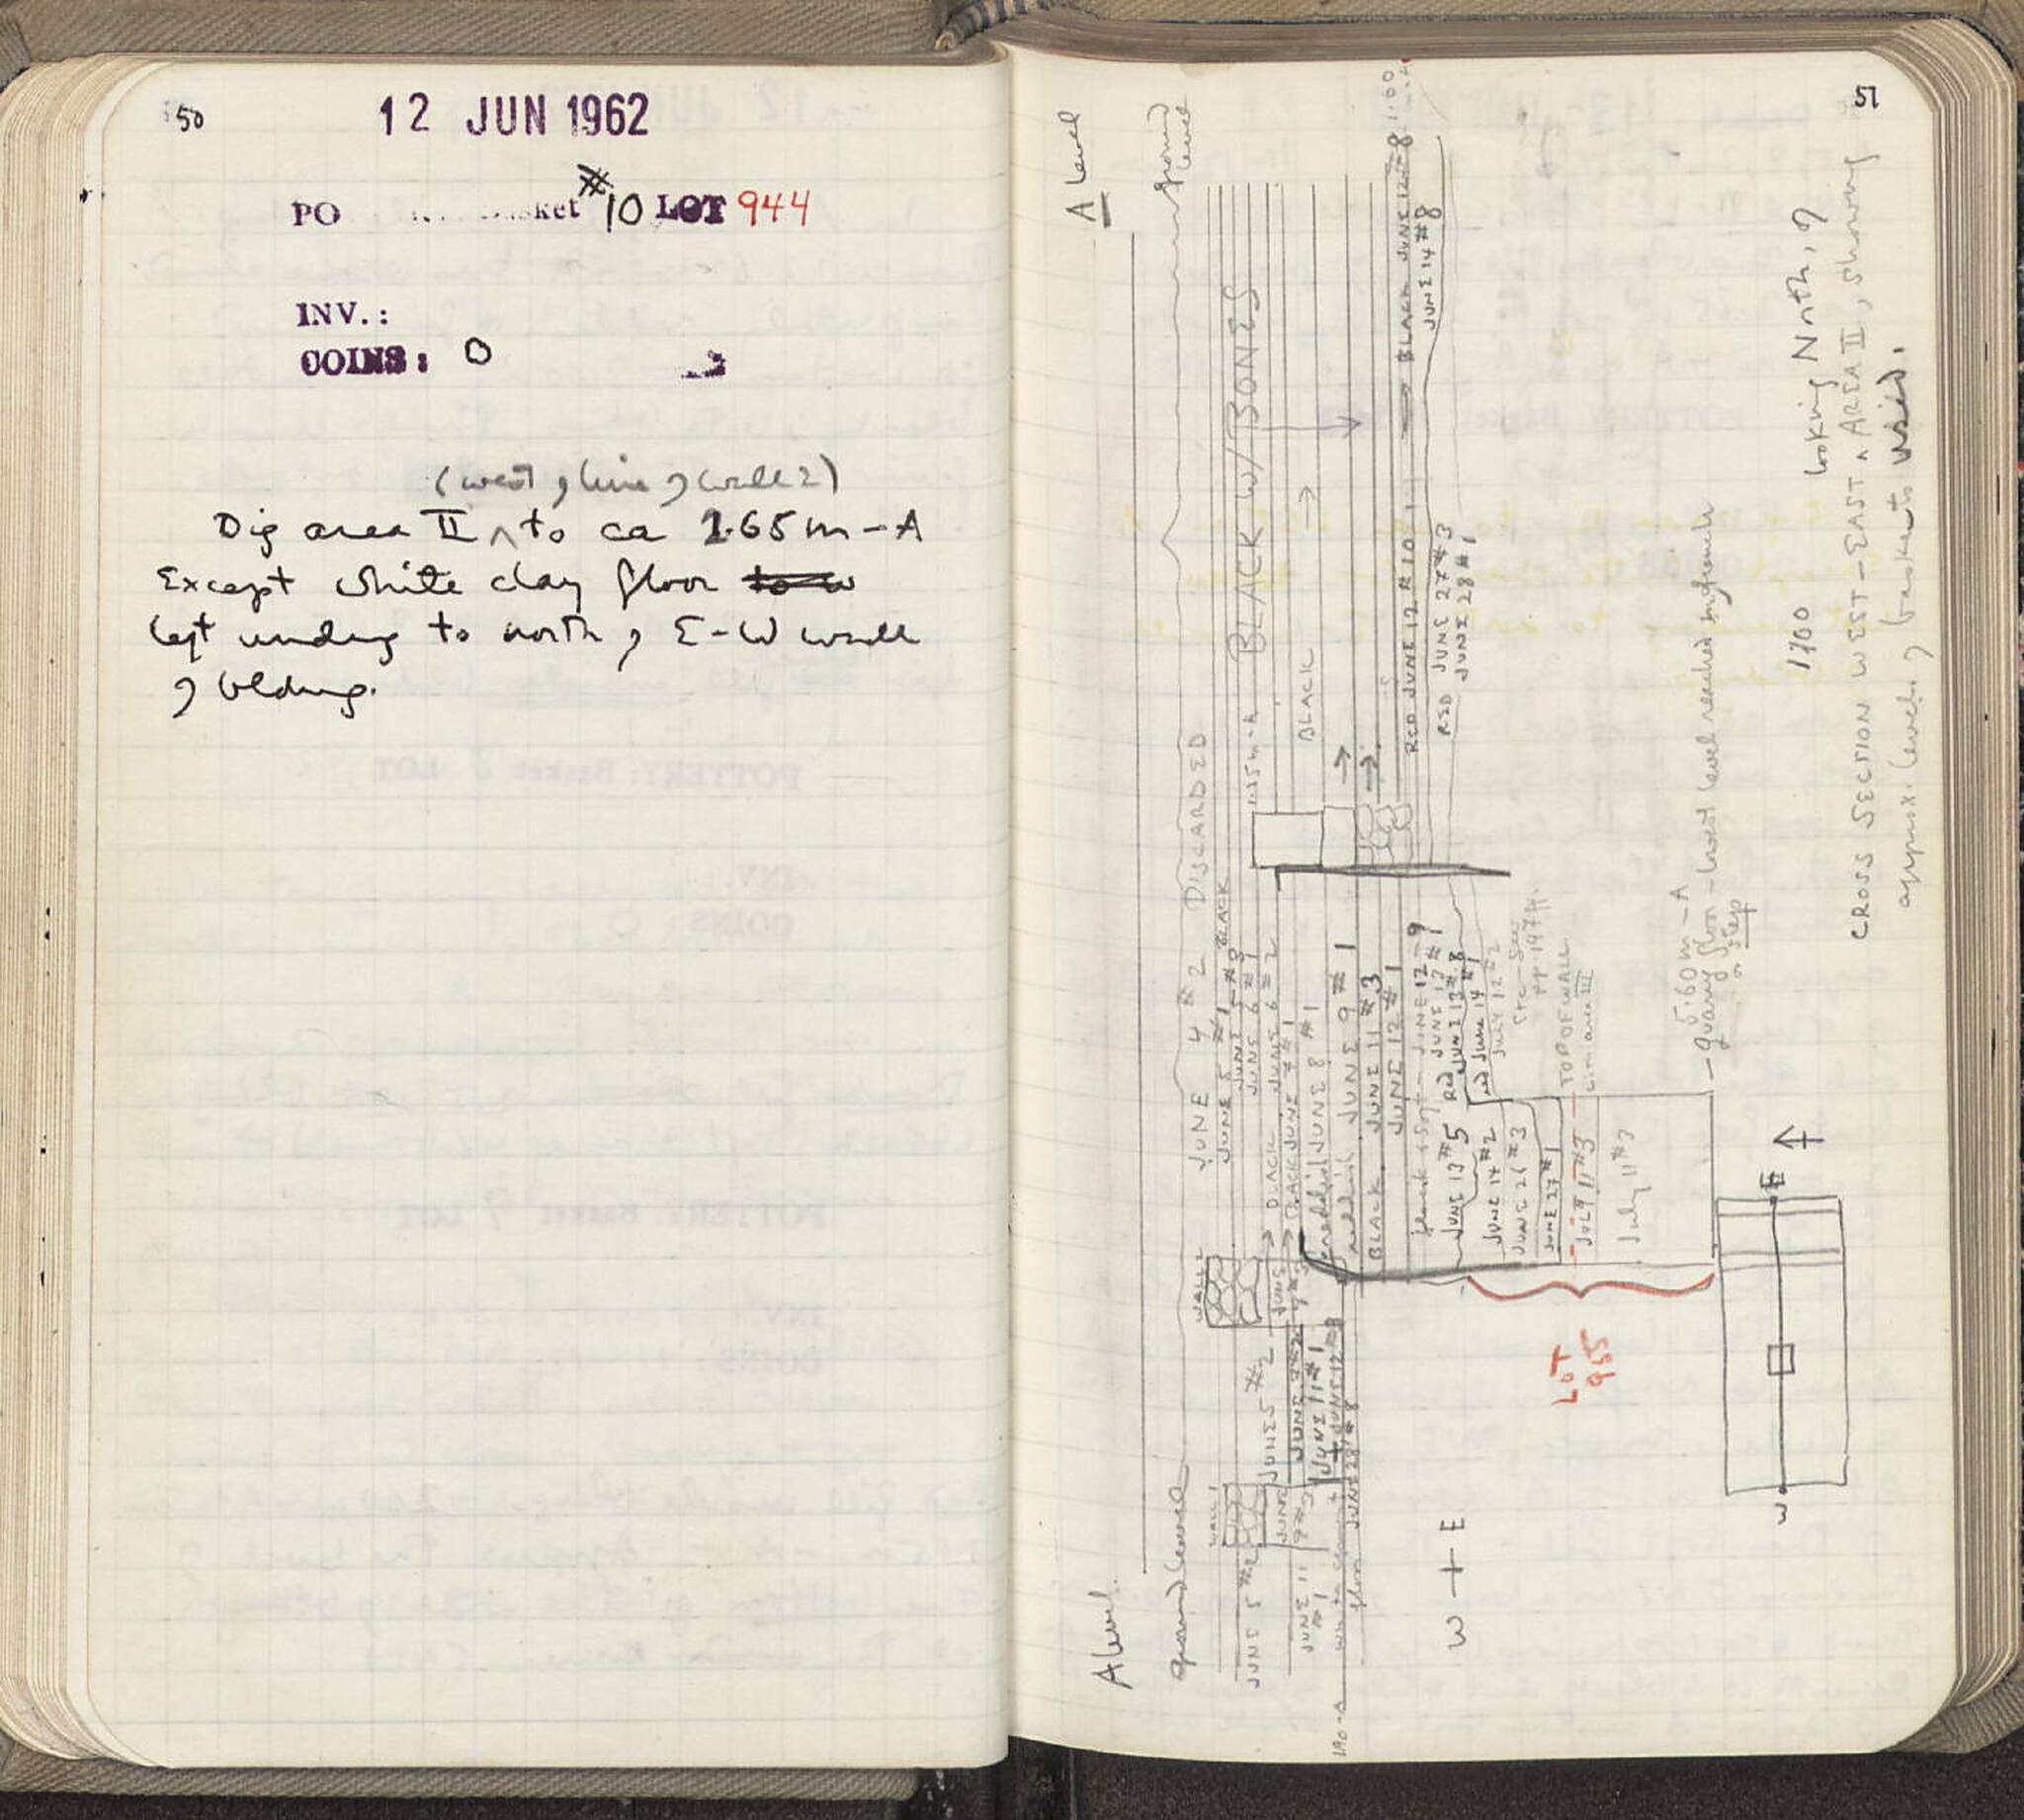 50
12 JUN 1962
PO
#10 LOT 944
INV.:
COINS: 0
(west of line of wall 2)
Dig area II ^ to ca 1.65m - A
Except white clay floor
left underg to north of E-W wall
of bldng.
51
A level
ground level
A level.
ground level
JUNE 4 #2 DISCARDED
JUNE 5 #1 BLACK
JUNE 6 #1
BLACK JUNE 6 #2
BLACK JUNE 7 #1
JUNE 8 #1
JUNE 9 #1
BLACK JUNE 11 #3
JUNE 12 #1
JUNE 12 - 9
1.25m - A
BLACK W/ BONES
BLACK
RED JUNE 12 #10
BLACK JUNE 12 - 8
JUNE 14 #8
RED JUNE 27 #3
JUNE 28 #1
JUNE 13 #5
RED JUNE 13 #8
JUNE 14 #2
Red June 14 #1
JUNE 26 #3
July 12 #2
JUNE 27 #1
JULY 11 #3
July 11 #3
TOP OF WALL
LOT
955
WALL 2
WALL 1
JUNE 5 #2
JUNE 5 #2
JUNE 11 #1
JUNE 11 #1
JUNE 12 #8
JUNE 28 #8
floor
W + E
5.60m - A
- quarry floor - lowest level reached in trench
or step
1960 looking North, of
CROSS SECTION WEST - EAST ^ AREA II, showing
approx. levels of baskets used.
W
E